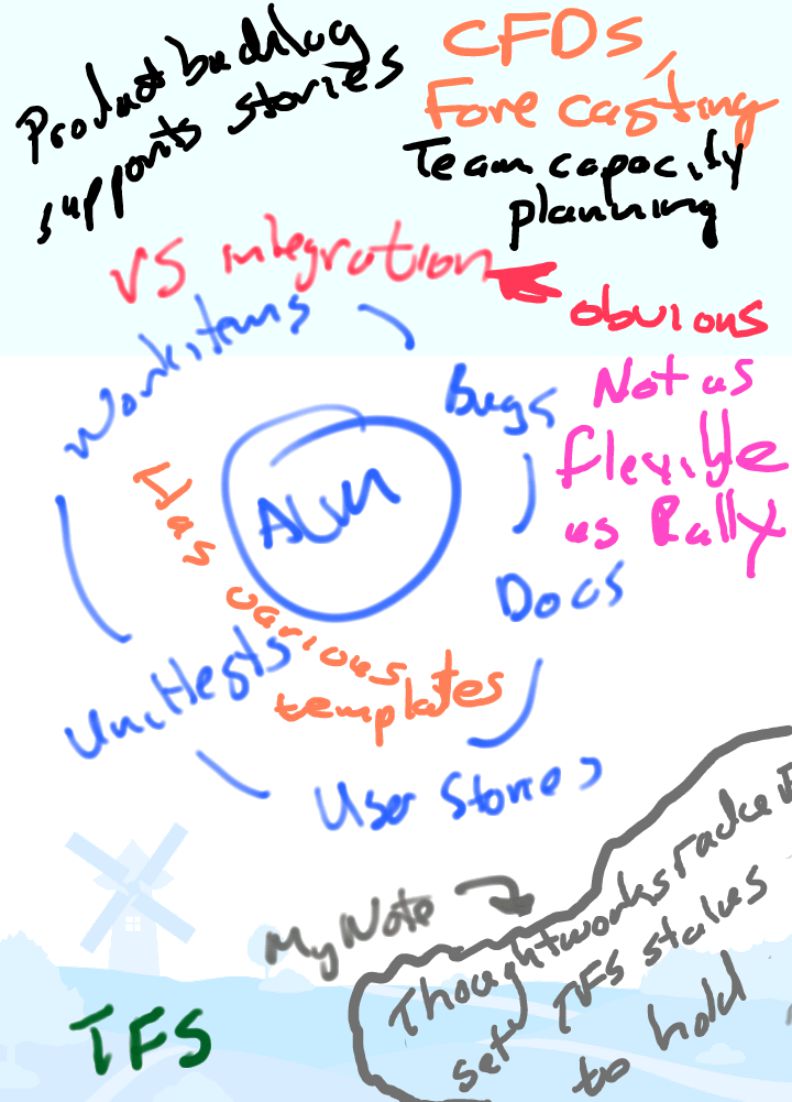 Product backlog
supports stories
CFDs,
Forecasting
Team capacity
planning
VS integration
obvious
Not as
flexible
as Rally
Work items
Bugs
ALM
Docs
User Stories
Unittests
Has various
templates
My Note
Thoughtworks radar
set TFS status
to hold
TFS